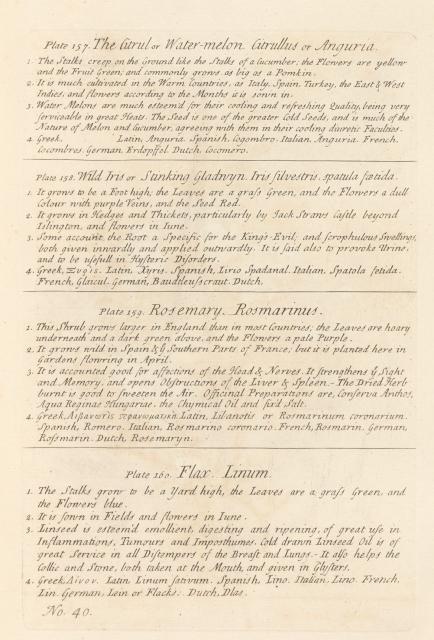 Plate 157. The Citrul or Water-melon Citrullus or Anguria.
1. The Stalks creep on the Ground like the Stalks of a Cucumber; the Flowers are yellow
and the Fruit Green; and commonly grows as big as a Pomkin.
2. It is much cultivated in the Warm Countries, as Italy, Spain, Turkey, the East & West
Indies, and flowers according to the Months it is sown in.
3. Water Melons are much esteem'd for their cooling and refreshing Quality, being very
serviceable in great Heats. The Seed is one of the greater Cold Seeds, and is much of the
Nature of Melon and Cucumber, agreeing with them in their cooling diuretic Faculties.
4. Greek, Latin, Anguria. Spanish, Cogombro. Italian, Anguria. French,
Cocombres. German, Erdopffel. Dutch, Cocomero.
Plate 158. Wild Iris or Stinking Gladwyn. Iris silvestris. spatula fœtida.
1. It grows to be a Foot high; the Leaves are a grass Green, and the Flowers a dull
Colour with purple Veins, and the Seed Red.
2. It grows in Hedges and Thickets, particularly by Jack Straws Castle beyond
Islington, and flowers in Iune.
3. Some account the Root a Specific for the Kings-Evil; and scrophulous Swellings,
both given inwardly and applied outwardly. It is said also to provoke Urine,
and to be usefull in Hysteric Disorders.
4. Greek, Ξυρίς. Latin, Xyris. Spanish, Lirio Spadanal. Italian, Spatola fetida.
French, Glaicul. German, Dutch.
Plate 159. Rosemary. Rosmarinus.
1. This Shrub grows larger in England than in most Countries; the Leaves are hoary
underneath and a dark green above, and the Flowers a pale Purple.
2. It grows wild in Spain & ye Southern Parts of France; but it is planted here in
Gardens flowring in April.
3. It is accounted good for affections of the Head & Nerves. It strengthens ye Sight
and Memory, and opens Obstructions of the Liver & Spleen. - The Dried Herb
burnt is good to sweeten the Air. Officinal Preparations are, Conserva Anthos,
Aqua Reginae Hungarae, the Chymical Oil and fix'd Salt.
4. Greek, Λιβανωτὶς Latin, Libanotis or Rosmarinum coronarium.
Spanish, Romero. Italian, Rosmarino coronario. French, Rosmarin. German,
Rossmarin. Dutch, Rosemaryn.
Plate 160. Flax. Linum.
1. The Stalks grow to be a Yard high, the Leaves are a grass Green, and
the Flowers blue.
2. It is sown in Fields and flowers in Iune.
3. Linseed is esteem'd emollient, digesting and ripening, of great use in
Inflammations, Tumours and Imposthumes. Cold drawn Linseed Oil is of
great Service in all Distempers of the Breast and Lungs. - It also helps the
Collic and Stone, both taken at the Mouth, and given in Glysters.
4. Greek, Λίνον. Latin, Linum sativum. Spanish, Lino. Italian, Lino. French,
Lin. German, Lein or Flachs. Dutch, Dlas.
No. 40.